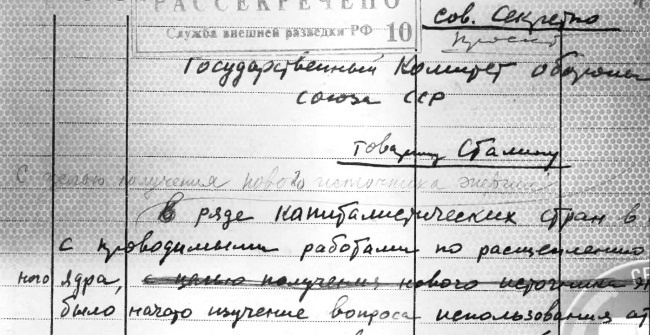 РАССЕКРЕЧЕНО
Служба внешней разведки РФ 10
Сов. Секретно
проект
Государственный Комитет обороны
союза ССР
товарищу Сталину
с целью получения нового источника энергии
В ряде капиталистических стран в
с проводимыми работами по расщеплению
ного ядра, с целью получения нового источника эн
было начато изучение вопроса использования ат